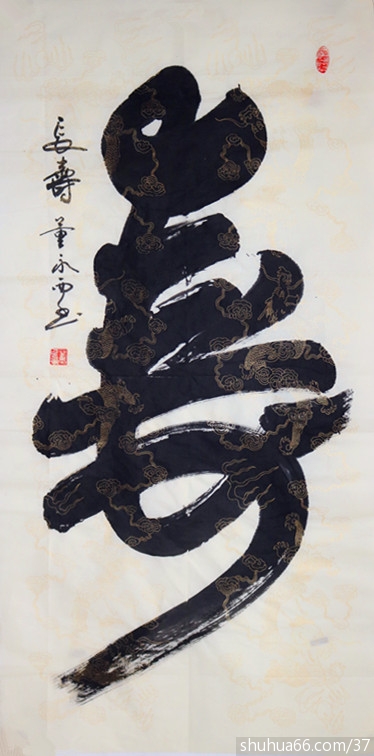 寿
長壽 董永西书
shuhua66.com/37